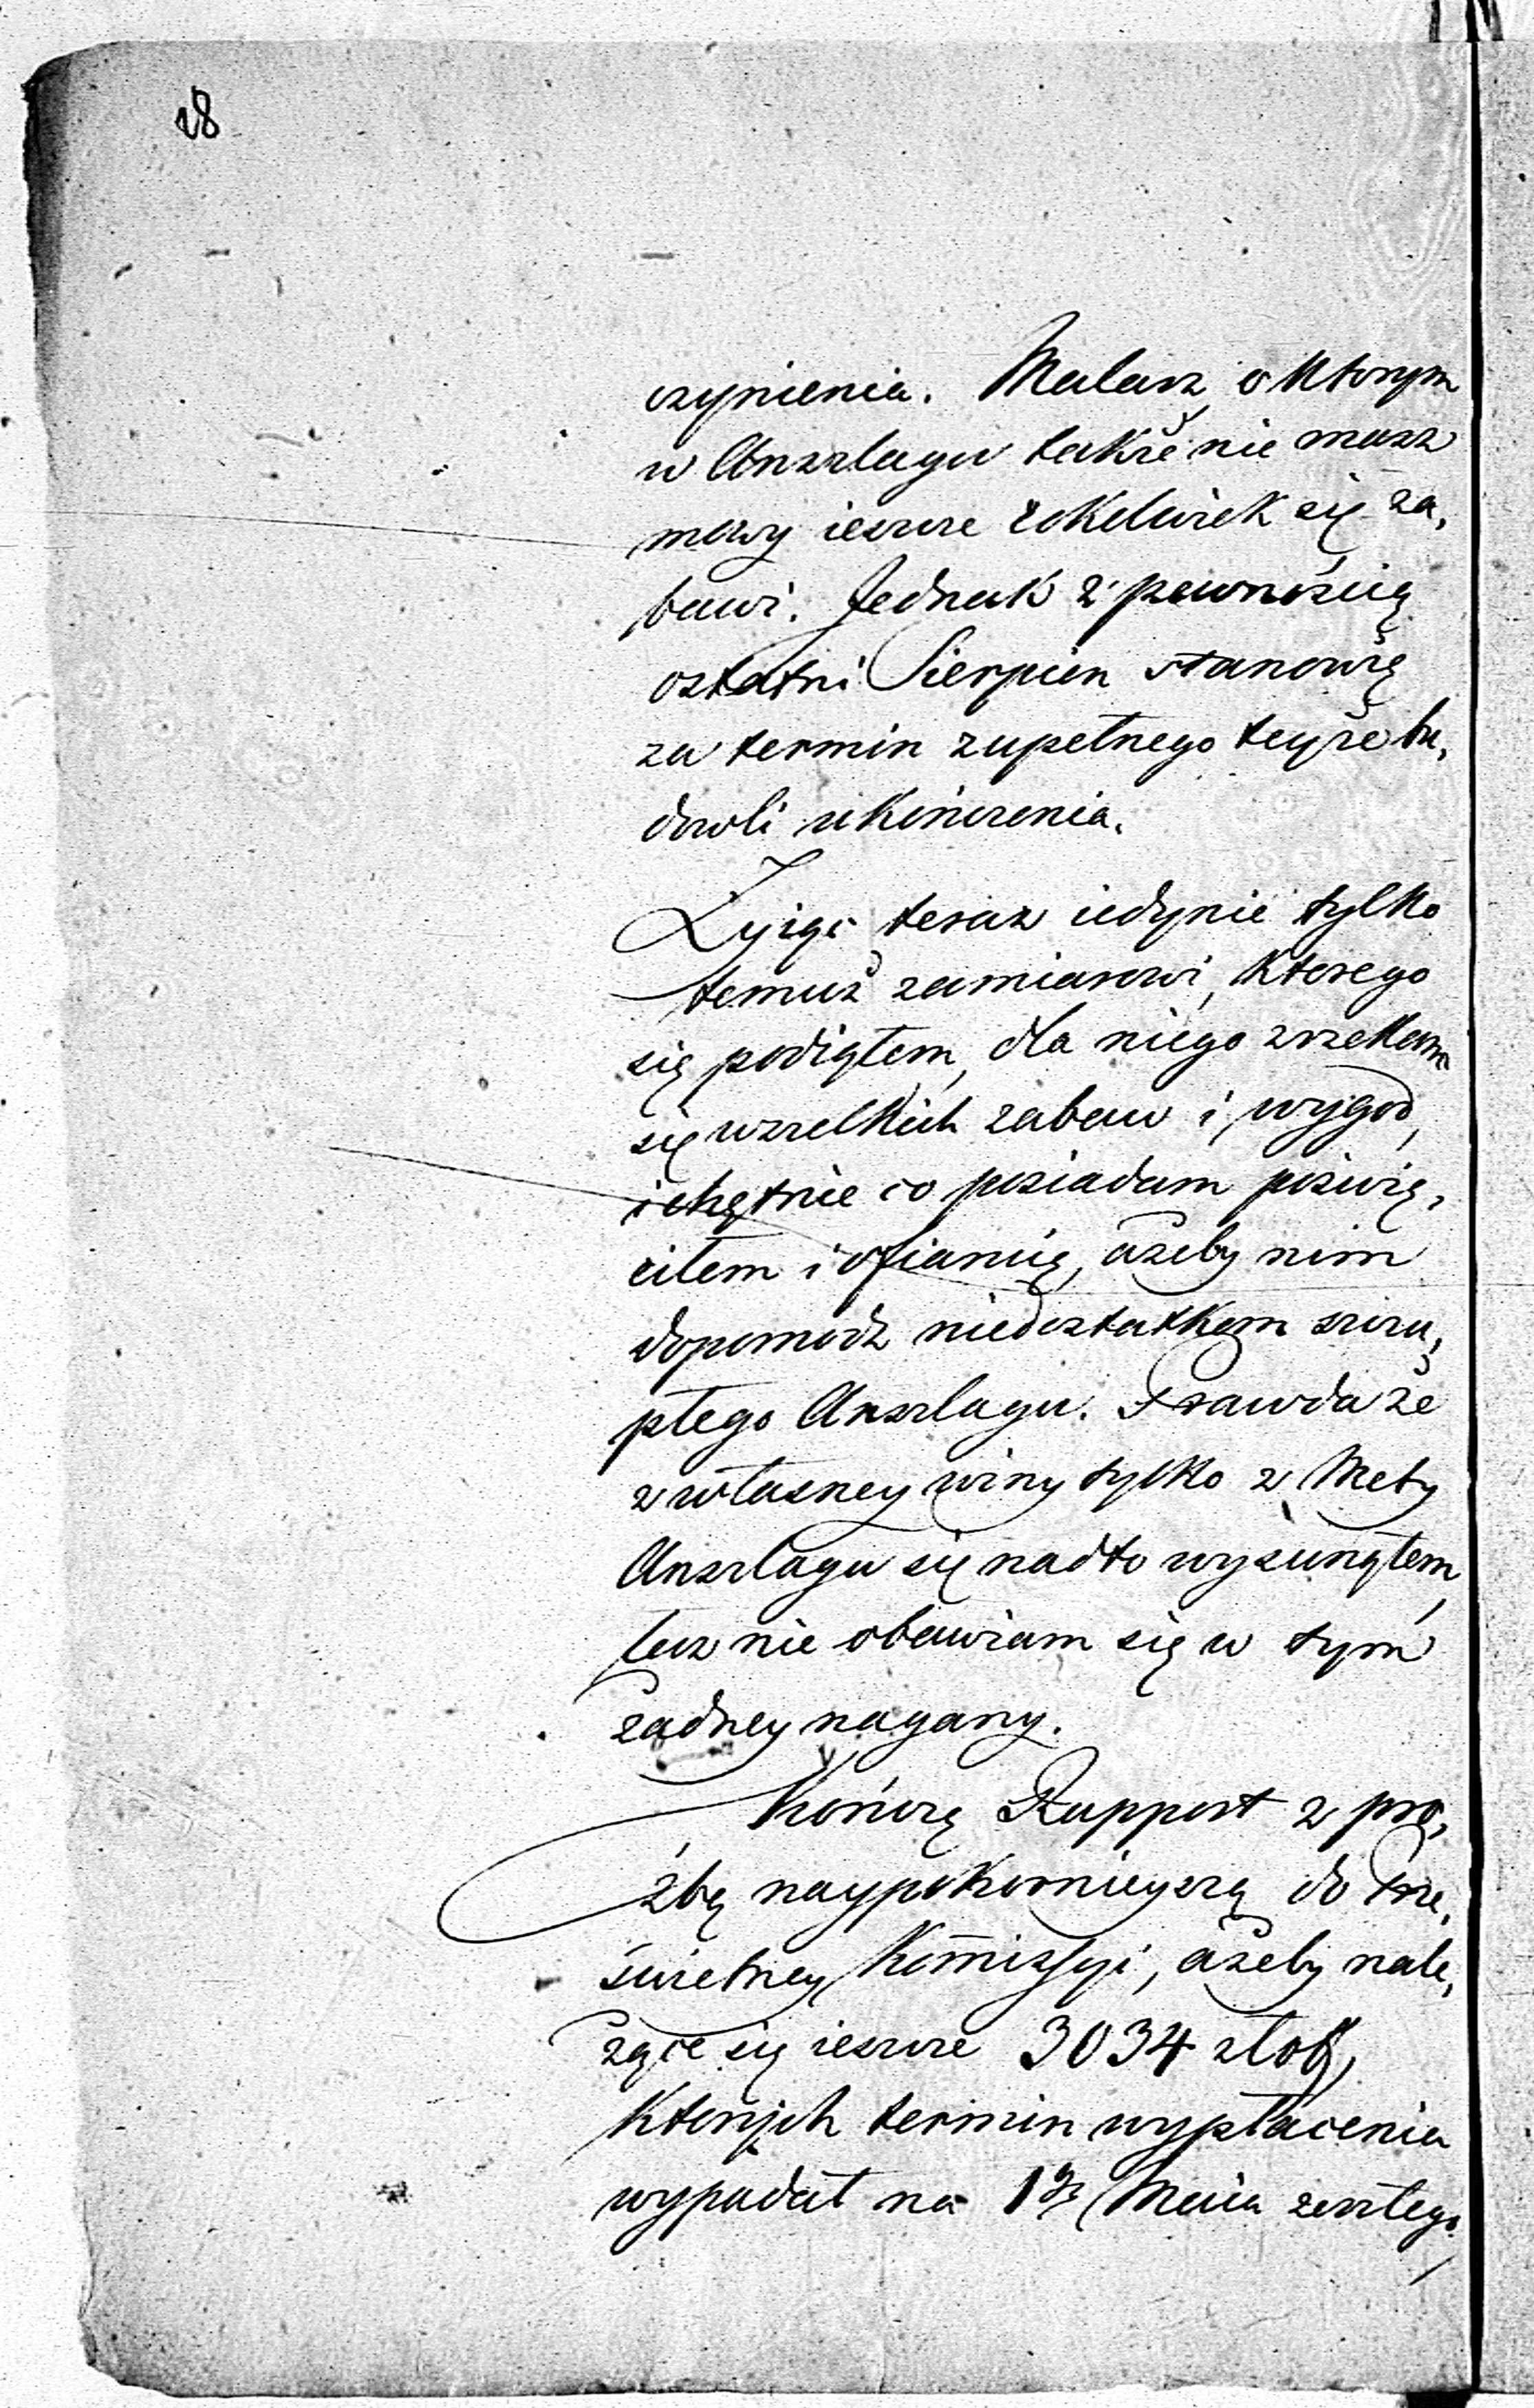 28
czynienia. Malarz o ktorym
w Anszlagu także nie masz
mowy ieszcze cokolwiek się za,
bawi. Jednak z pewnością
ostatni Sierpien stanowię
za termin zupełnego teyże bu,
dowli ukończenia.
Żyiąc teraz iedynie tylko
temuż zamiarowi, ktorego
się podiąłem, dla niego zrzekam
się wszelkich zabaw i wygod,
i chętnie co posiadam poświę,
ciłem i ofiaruię, ażeby nim
dopomodz niedostatkom szczu,
płego Anszlagu. Prawda że
z własney winy tylko z Mety
Anszlagu się nadto wysunąłem,
lecz nie obawiam się w tym
żadney nagany.
Kończę Rapport z pro,
źbą naypokornieyszą do Prze,
świetney Kom̄issyi, ażeby nale,
żące się ieszcze 3034 złot,
ktorych termin wypłacenia
wypadał na 1g Maia zeszłego